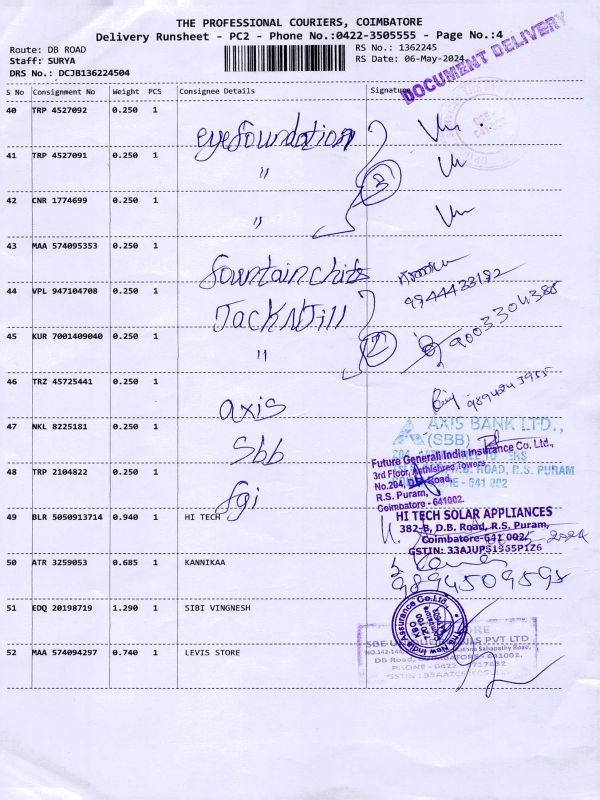 THE PROFESSIONAL COURIERS, COIMBATORE
Delivery Runsheet - PC2 - Phone No.:0422-3505555 - Page No.:4
Route: DB ROAD
Staff: SURYA
DRS No.: DCJB136224504
RS No.: 1362245
RS Date: 06-May-2024
DOCUMENT DELIVERY
S No Consignment No Weight PCS Consignee Details Signature
40 TRP 4527092 0.250 1
eyefoundation
41 TRP 4527091 0.250 1
"
3
42 CNR 1774699 0.250 1
"
43 MAA 574095353 0.250 1
fountainchits
44 VPL 947104708 0.250 1
9944423192
JackNJill
9003304385
45 KUR 7001409040 0.250 1
"
2
46 TRZ 45725441 0.250 1
axis
9894943955
47 NKL 8225181 0.250 1
Sbb
AXIS BANK LTD.,
(SBB)
48 TRP 2104822 0.250 1
fgi
Future Generali India Insurance Co. Ltd.,
3rd Floor, Towers
No.204, D.B. Road,
R.S. Puram,
Coimbatore - 641002.
ROAD, R.S. PURAM
- 641 002
49 BLR 5050913714 0.940 1 HI TECH
HI TECH SOLAR APPLIANCES
382-B, D.B. Road, R.S. Puram,
Coimbatore-641 002.
GSTIN: 33AJUPS1955P1Z6
50 ATR 3259053 0.685 1 KANNIKAA
9894509595
51 EDQ 20198719 1.290 1 SIBI VINGNESH
The New India Assurance Co. Ltd.
52 MAA 574094297 0.740 1 LEVIS STORE
PVT LTD
DB Road, 641002.